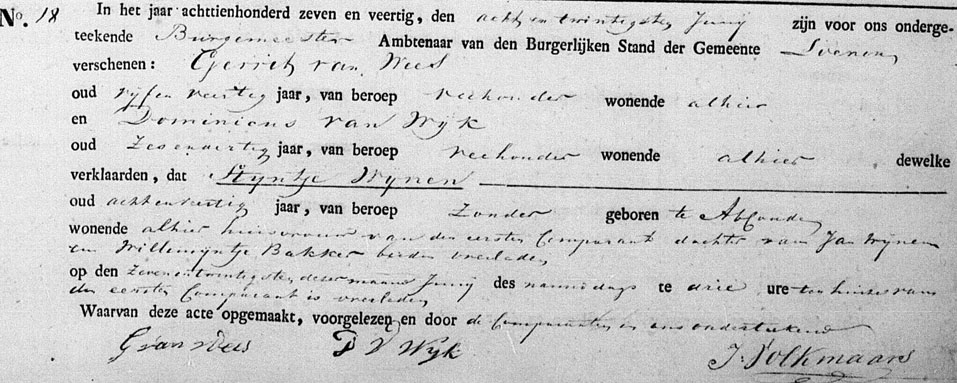 No. 18 In het jaar achttienhonderd zeven en veertig, den acht en twintigsten Junij zijn voor ons onderge-
teekende Burgemeester Ambtenaar van den Burgerlijken Stand der Gemeente Loenen
verschenen: Gerrit van Wees
oud vijf en veertig jaar, van beroep veehouder wonende alhier
en Dominicus van Wijk
oud Zesenveertig jaar, van beroep veehouder wonende alhier dewelke
verklaarden, dat Styntje Wynen
oud acht en veertig jaar, van beroep Zonder geboren te Abcoude
wonende alhier huisvrouw van den eersten Comparant dochter van Jan Wynen
en Willemyntje Bakker beiden overleden
op den Zeven en twintigsten dezer maand Junij des namiddags te drie ure ten huize van
den eersten Comparant is overleden
Waarvan deze acte opgemaakt, voorgelezen en door de Comparanten en ons onderteekend
G van Wees P V Wyk J. Volkmaars